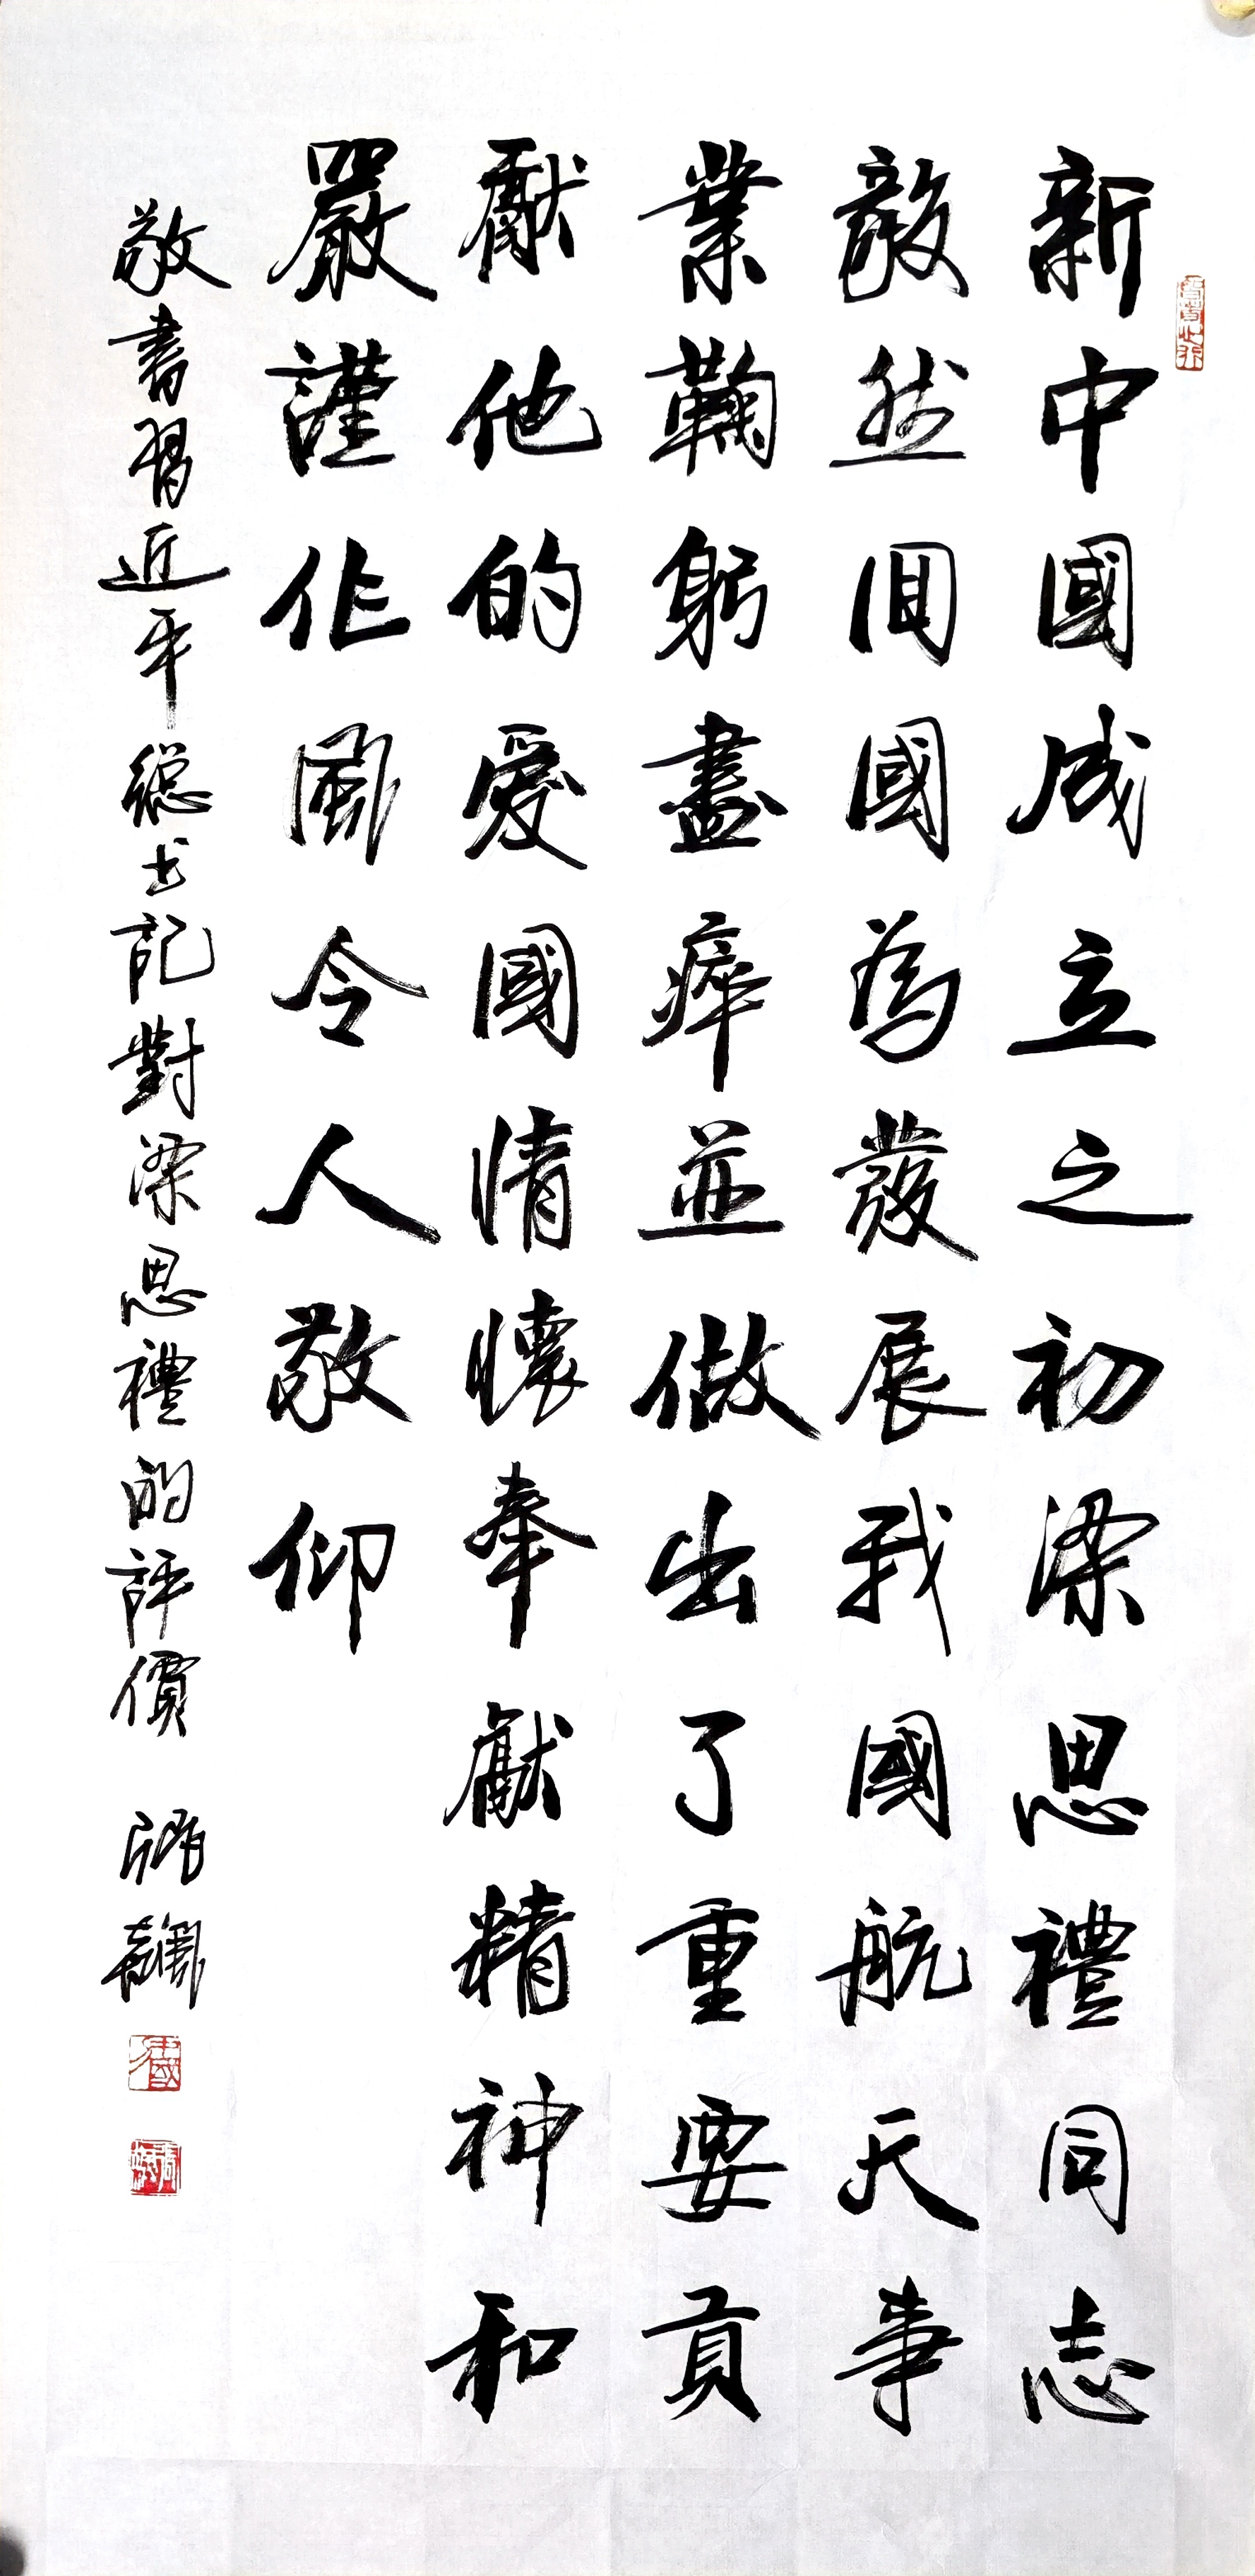 新中國成立之初梁思禮同志
毅然回國為發展我國航天事
業鞠躬盡瘁並做出了重要貢
獻他的愛國情懷奉獻精神和
嚴謹作風令人敬仰
敬書習近平總书記對梁思禮的評價